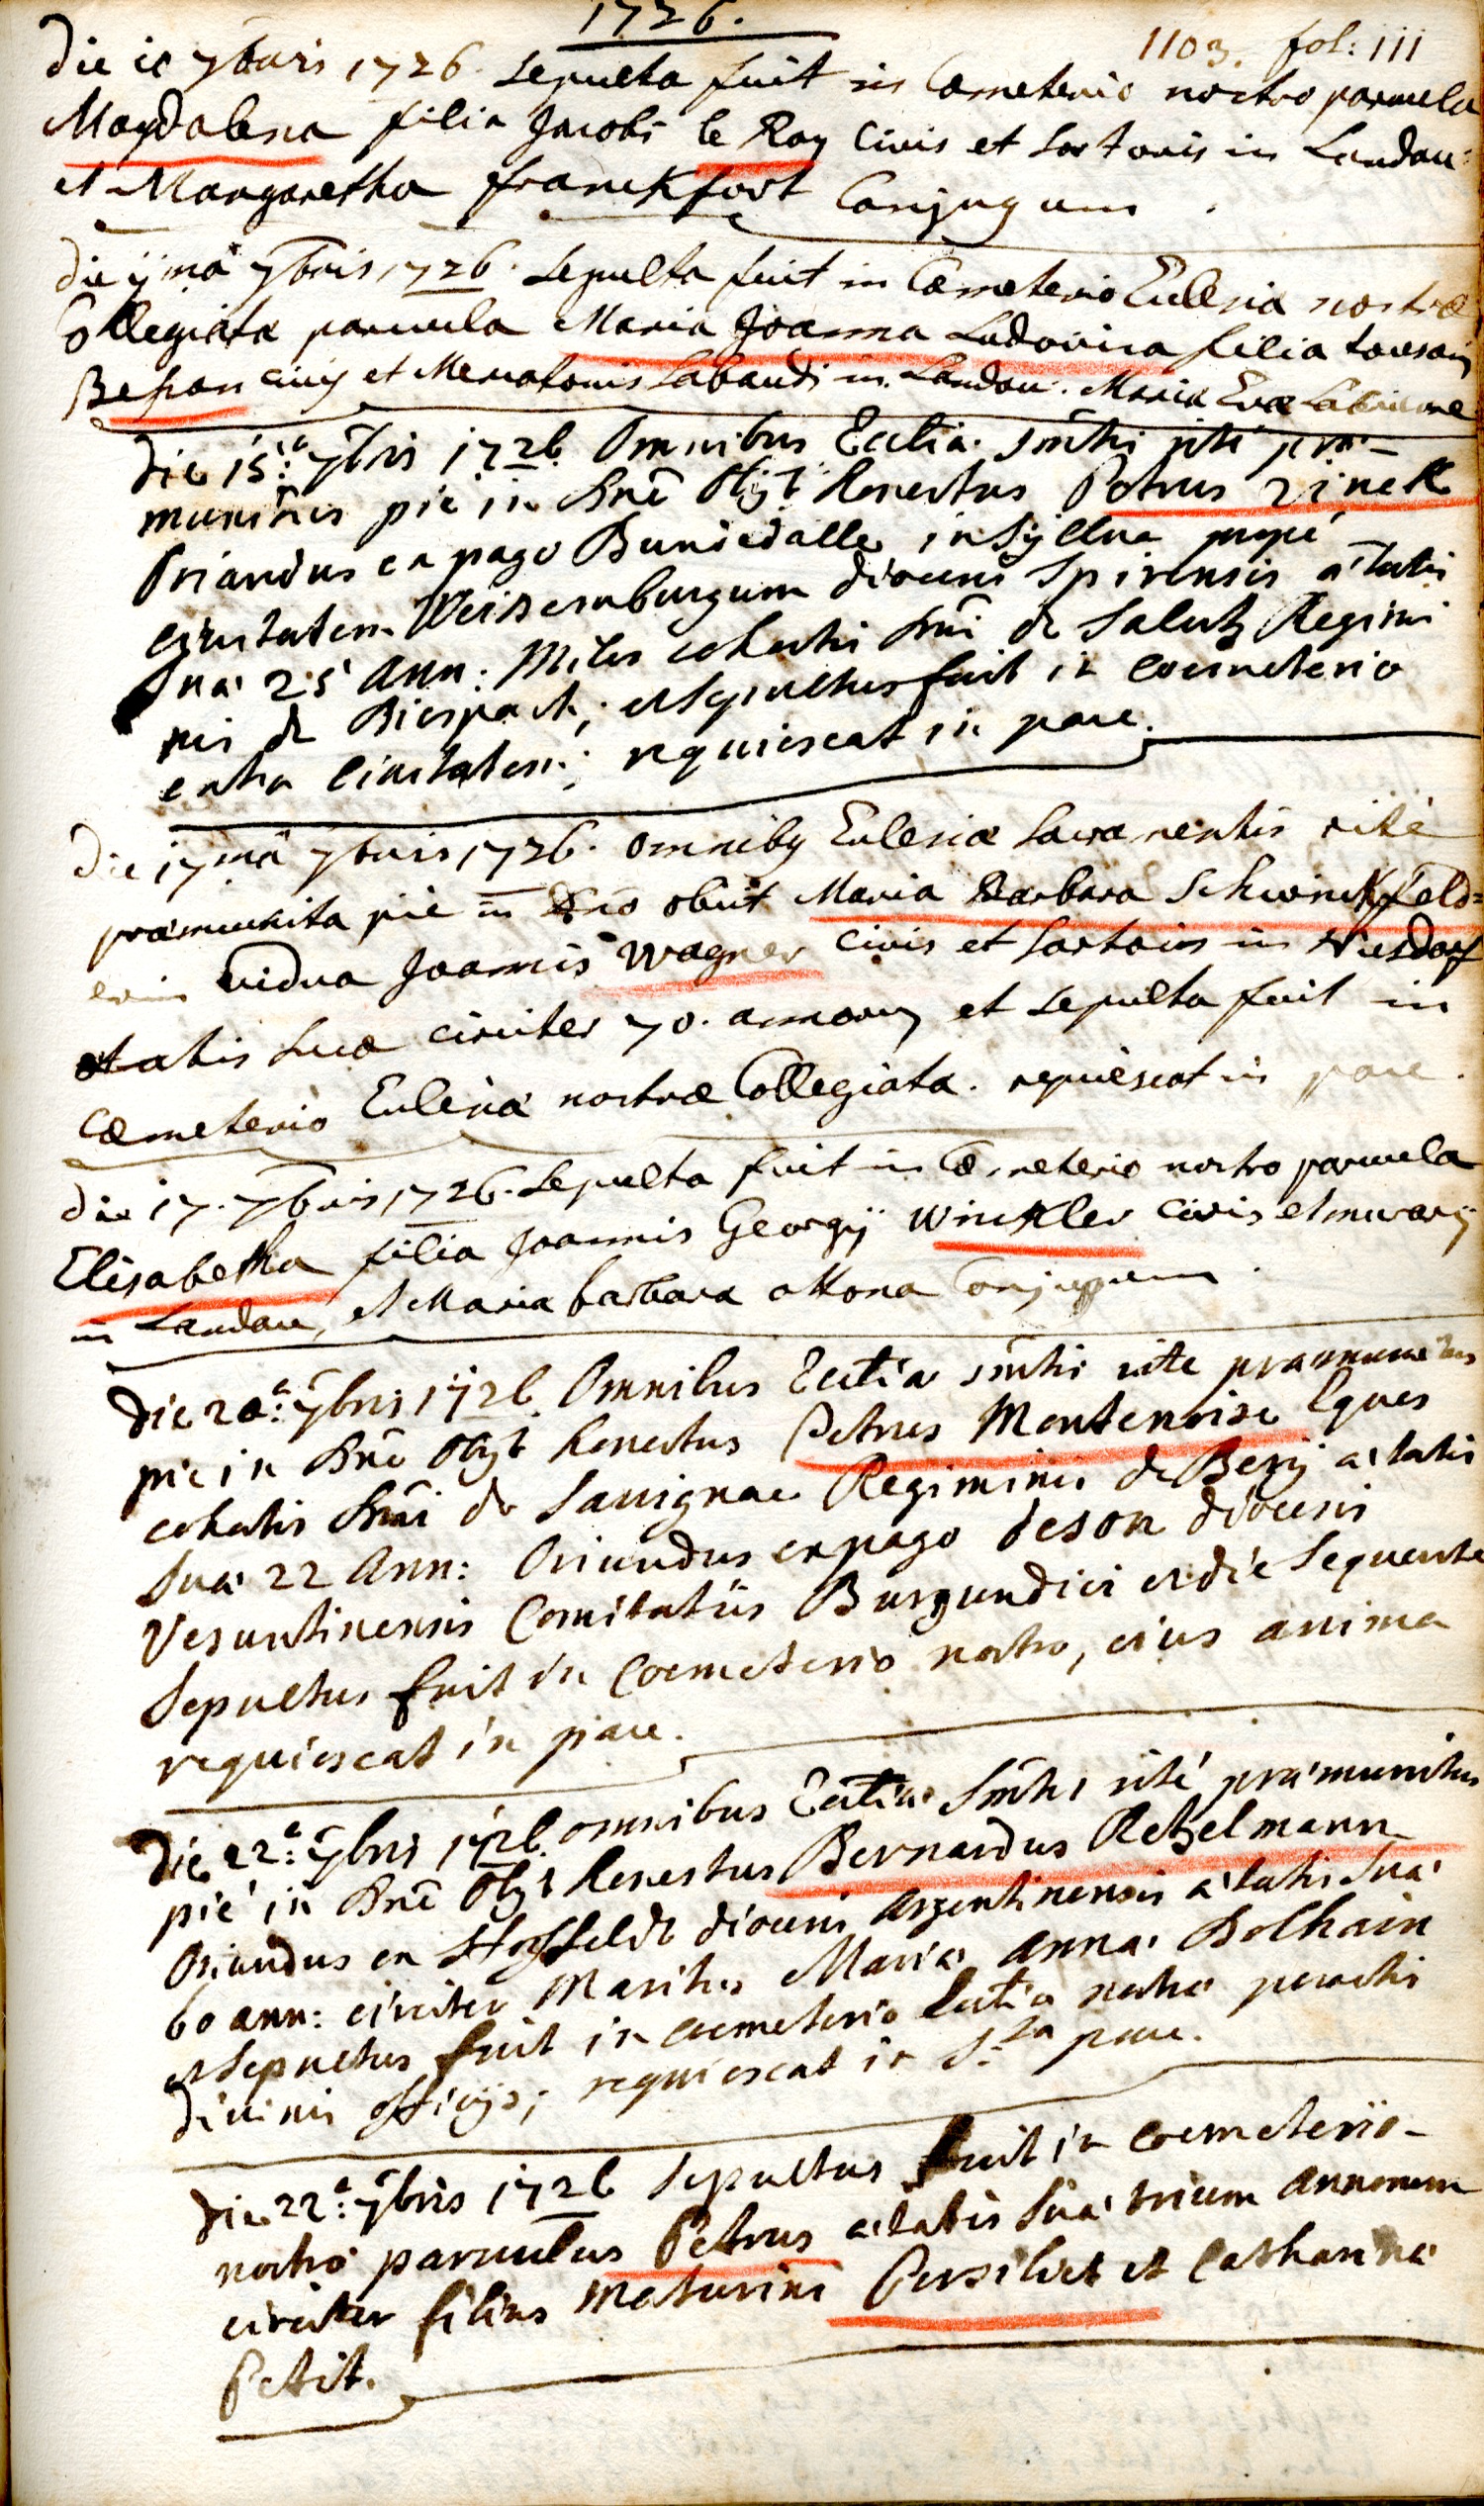 1726.
1103. fol: 111
Die ii 7bris 1726. sepulta fuit in Cœmeterio nostro parvula
Magdalena filia Jacobi le Roy Civis et Sartoris in Landau:
et Margaretha franckfort Conjugum.
die 7bris 1726. sepulta fuit in Cœmeterio Ecclesiæ nostræ
Collegiata parvula Maria Joanna Ludovica filia tousain
Besson civis et Mercatoris Sabaudi in Landau. Maria Eva
Die 15.a 7bris 1726 Omnibus Eccliæ Smtis rite præ-
munitus pie in Dnõ Obyt Honestus Petrus Zinck
Oriundus ex pago Bundedalle in Syllva propé
civitatem Weissemburgum diocesis Spirensis ætatis
Suæ 25 Ann: Miles cohortis Dni de Salutz Regimi
nis de Diespach; et Sepultus fuit in coemeterio
extra Civitatem; requiescat in pace.
Die 17mâ 7bris 1726. omnibus Ecclesiæ Sacramentis rité
præmunita pie in Dno obiit Maria Barbara Schwinckfeld=
erin vidua Joannis Wagner civis et Sartoris in Nusdorf
ætatis suæ circiter 70. annorum et sepulta fuit in
Cæmeterio Ecclesiæ nostræ Collegiata. requiescat in pace.
Die 17. 7bris 1726. Sepulta fuit in Cœmeterio nostro parvula
Elisabetha filia Joannis Georgÿ Winckler civis et murarÿ
in Landau, et Maria barbara Conjugum.
Die 20.a 7bris 1726. Omnibus Eccliæ Smtis rite præmunitus
pie in Dnõ Obyt Honestus Petrus Montenoise Eques
cohortis Dni de Sauvignac Regiminis de Berÿ ætatis
Suæ 22 Ann: Oriundus ex pago deson diocesis
Vesuntinensis Comitatûs Burgundici et die Sequente
Sepultus fuit in Coemeterio nostro, eius anima
requiescat in pace.
Die 22.a 7bris 1726. omnibus Eccliæ Smtis rité præmunitus
pié in Dnõ Obyt Honestus Bernardus Retzelmann
Oriundus ex diocesis Argentinensis ætatis Suæ
60 ann: circiter Maritus Mariæ Annæ Dolhain
et Sepultus fuit in coemeterio Eccliæ nostræ peractis
divinis officÿs; requiescat in S.ta pace.
Die 22.a 7bris 1726 Sepultus fuit in coemeterio
nostro parvulus Petrus ætatis Suæ trium Annorum
circiter filius Maturini Persilliet et Catharinæ
Petit.